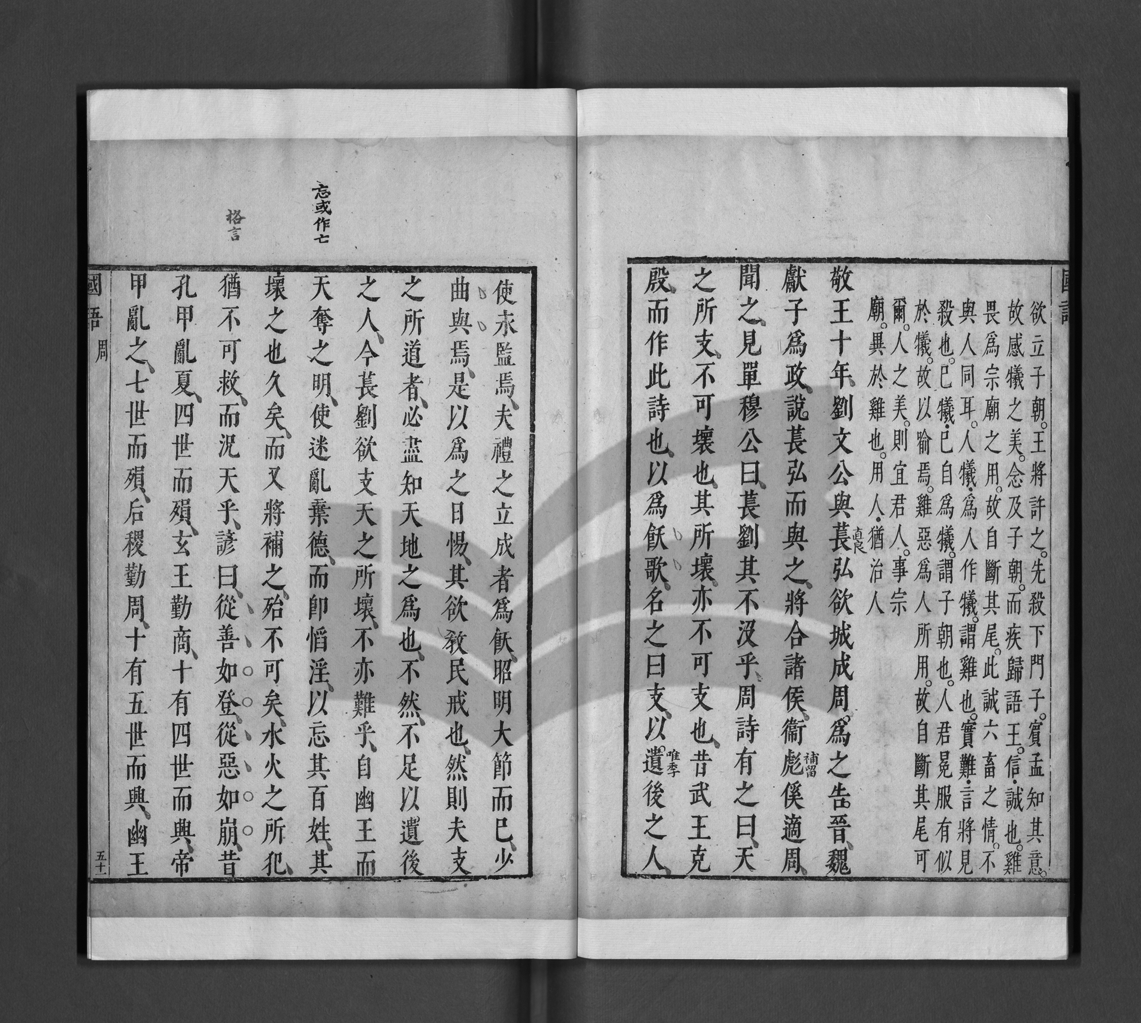 國語
欲立子朝。王將許之。先殺下門子。賓孟知其意。
故感犧之美。念及子朝。而疾歸語王。信誠也。雞
畏爲宗廟之用。故自斷其尾。此誠六畜之情。不
與人同耳。人犧。爲人作犧。謂雞也。實難。言將見
殺也。巳犧。巳自爲犧。謂子朝也。人君冕服有似
於犧。故以喻焉。雞惡爲人所用。故自斷其尾可
爾。人之美。則宜君人。事宗
廟。異於雞也。用人。猶治人
敬王十年、劉文公與萇弘欲城成周。爲之告晉、魏
直良
獻子爲政、說萇弘而與之、將合諸侯、衞彪傒適周、
補留
聞之、見單穆公曰、萇劉其不沒乎、周詩有之曰、天
之所支、不可壞也、其所壞、亦不可支也、昔武王克
殷、而作此詩也、以爲飫歌、名之曰支、以遺後之人、
唯季
使永監焉、夫禮之立成者爲飫、昭明大節而巳、少
曲與焉、是以爲之日惕、其欲敎民戒也、然則夫支
之所道者、必盡知天地之爲也、不然、不足以遺後
之人、今萇劉欲支天之所壞、不亦難乎、自幽王而
天奪之明、使迷亂棄德、而卽慆淫、以忘其百姓、其
忘或作亡
壞之也久矣、而又將補之、殆不可矣、水火之所犯、
猶不可救、而況天乎、諺曰、從善如登、從惡如崩、昔
格言
孔甲亂夏、四世而殞、玄王勤商、十有四世而興、帝
甲亂之、七世而殞、后稷勤周、十有五世而興、幽王
國語 周
五十一